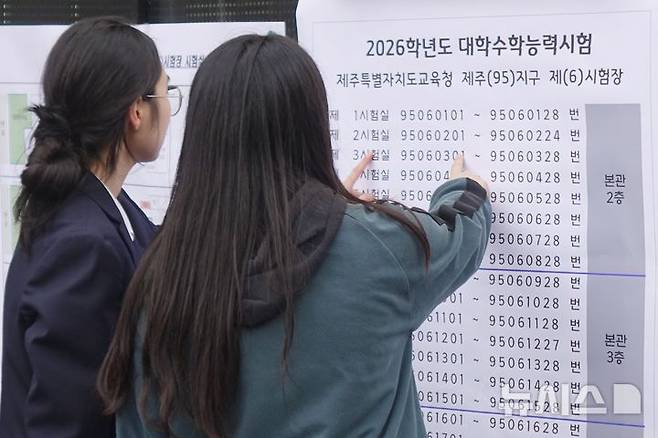 시험장 시험실
2026학년도 대학수학능력시험
제주특별자치도교육청 제주(95)지구 제(6)시험장
제 1시험실 95060101 ~ 95060128 번
제 2시험실 95060201 ~ 95060224 번
제 3시험실 95060301 ~ 95060328 번
시험실 ~ 95060428 번
시험실 ~ 95060528 번
95060628 번
95060728 번
95060828 번
본관
2층
95060928 번
~ 95061028 번
~ 95061128 번
~ 95061227 번
95061301 ~ 95061328 번
95061401 ~ 95061428 번
95061501 ~ 95061528 번
95061601 ~ 95061628 번
본관
3층
뉴시스